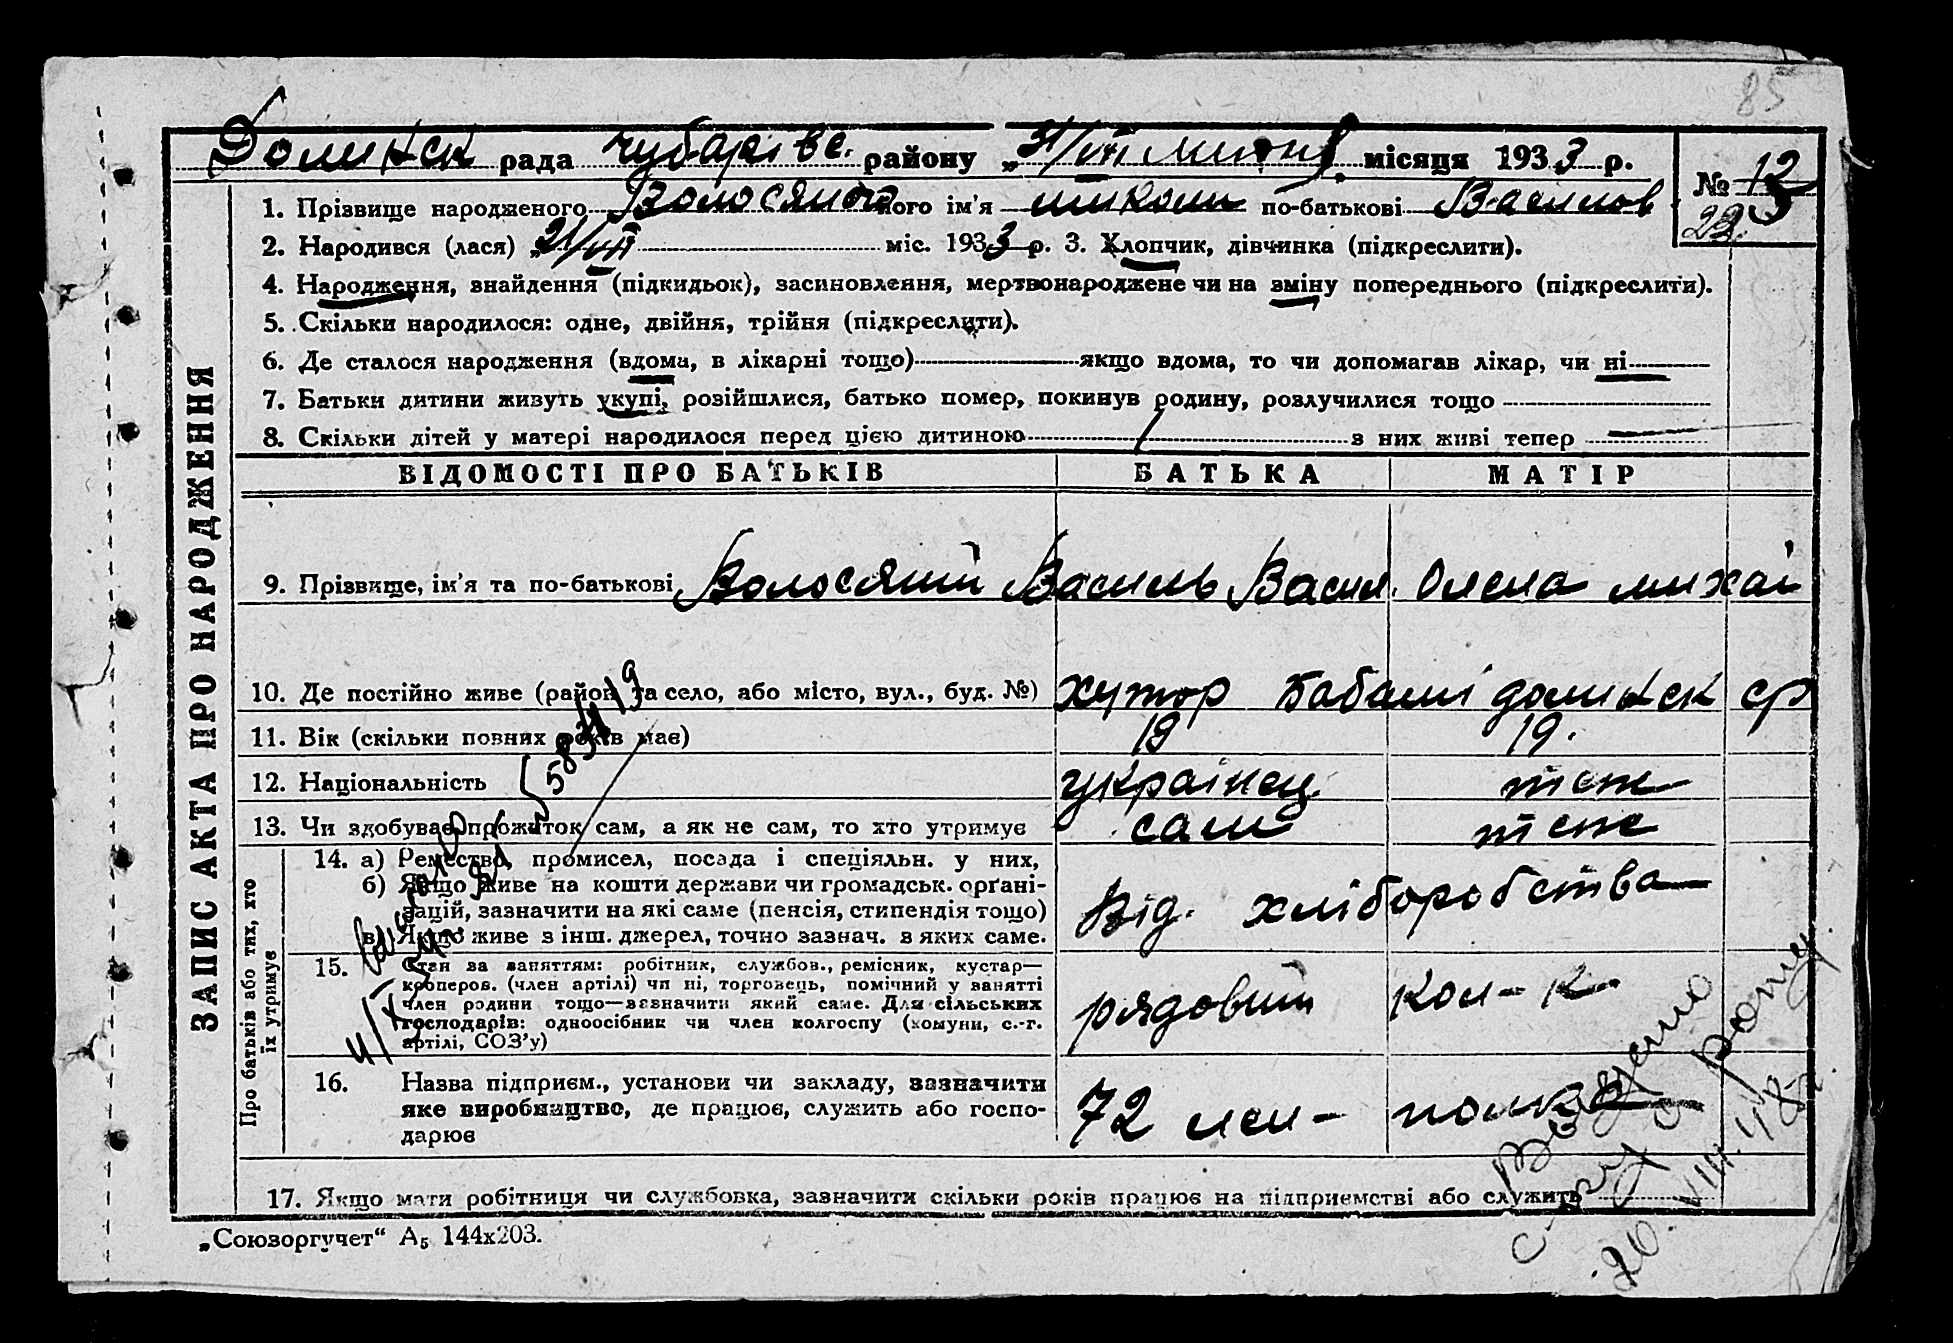 85
Долинск рада Чубарівс. району „31/VII місяця 1933 р.
№ 12
23.
1. Прізвище народженого Волосяного ім'я Микола по-батькові Василов
2. Народився (лася) „21/VII міс. 1933 р. 3. Хлопчик, дівчинка (підкреслити).
4. Народження, знайдення (підкидьок), засиновлення, мертвонароджене чи на зміну попереднього (підкреслити).
5. Скільки народилося: одне, двійня, трійня (підкреслити).
6. Де сталося народження (вдома, в лікарні тощо) якщо вдома, то чи допомагав лікар, чи ні
7. Батьки дитини живуть укупі, розійшлися, батько помер, покинув родину, розлучилися тощо
8. Скільки дітей у матері народилося перед цією дитиною 1 з них живі тепер —
ЗАПИС АКТА ПРО НАРОДЖЕННЯ
ВІДОМОСТІ ПРО БАТЬКІВ БАТЬКА МАТІР
9. Прізвище, ім'я та по-батькові Волосяний Василь Васил. Олена михай
10. Де постійно живе (район та село, або місто, вул., буд. №) хутор Бабаші долинск ср
11. Вік (скільки повних років має) 19 19.
12. Національність українец теж
13. Чи здобуває прожиток сам, а як не сам, то хто утримує сам теже
Про батьків або тих, хто їх утримує
14. а) Ремество, промисел, посада і спеціяльн. у них,
б) Якщо живе на кошти держави чи громадськ. орґані-
зацій, зазначити на які саме (пенсія, стипендія тощо)
в) Якщо живе з інш. джерел, точно зазнач. з яких саме.
Від. хліборобства
15. Стан за заняттям: робітник, службов., ремісник, кустар—
кооперов. (член артілі) чи ні, торговець, помічний у занятті
член родини тощо—зазначити який саме. Для сільських
господарів: одноосібник чи член колгоспу (комуни, с.-г.
артілі, СОЗ'у)
рядовий кол-к.
16. Назва підприєм., установи чи закладу, зазначити
яке виробництво, де працює, служить або госпо-
дарює
72
17. Якщо мати робітниця чи службовка, зазначити скільки років працює на підприємстві або служить
20. VIII. 48 г.
„Союзоргучет“ А₅ 144х203.